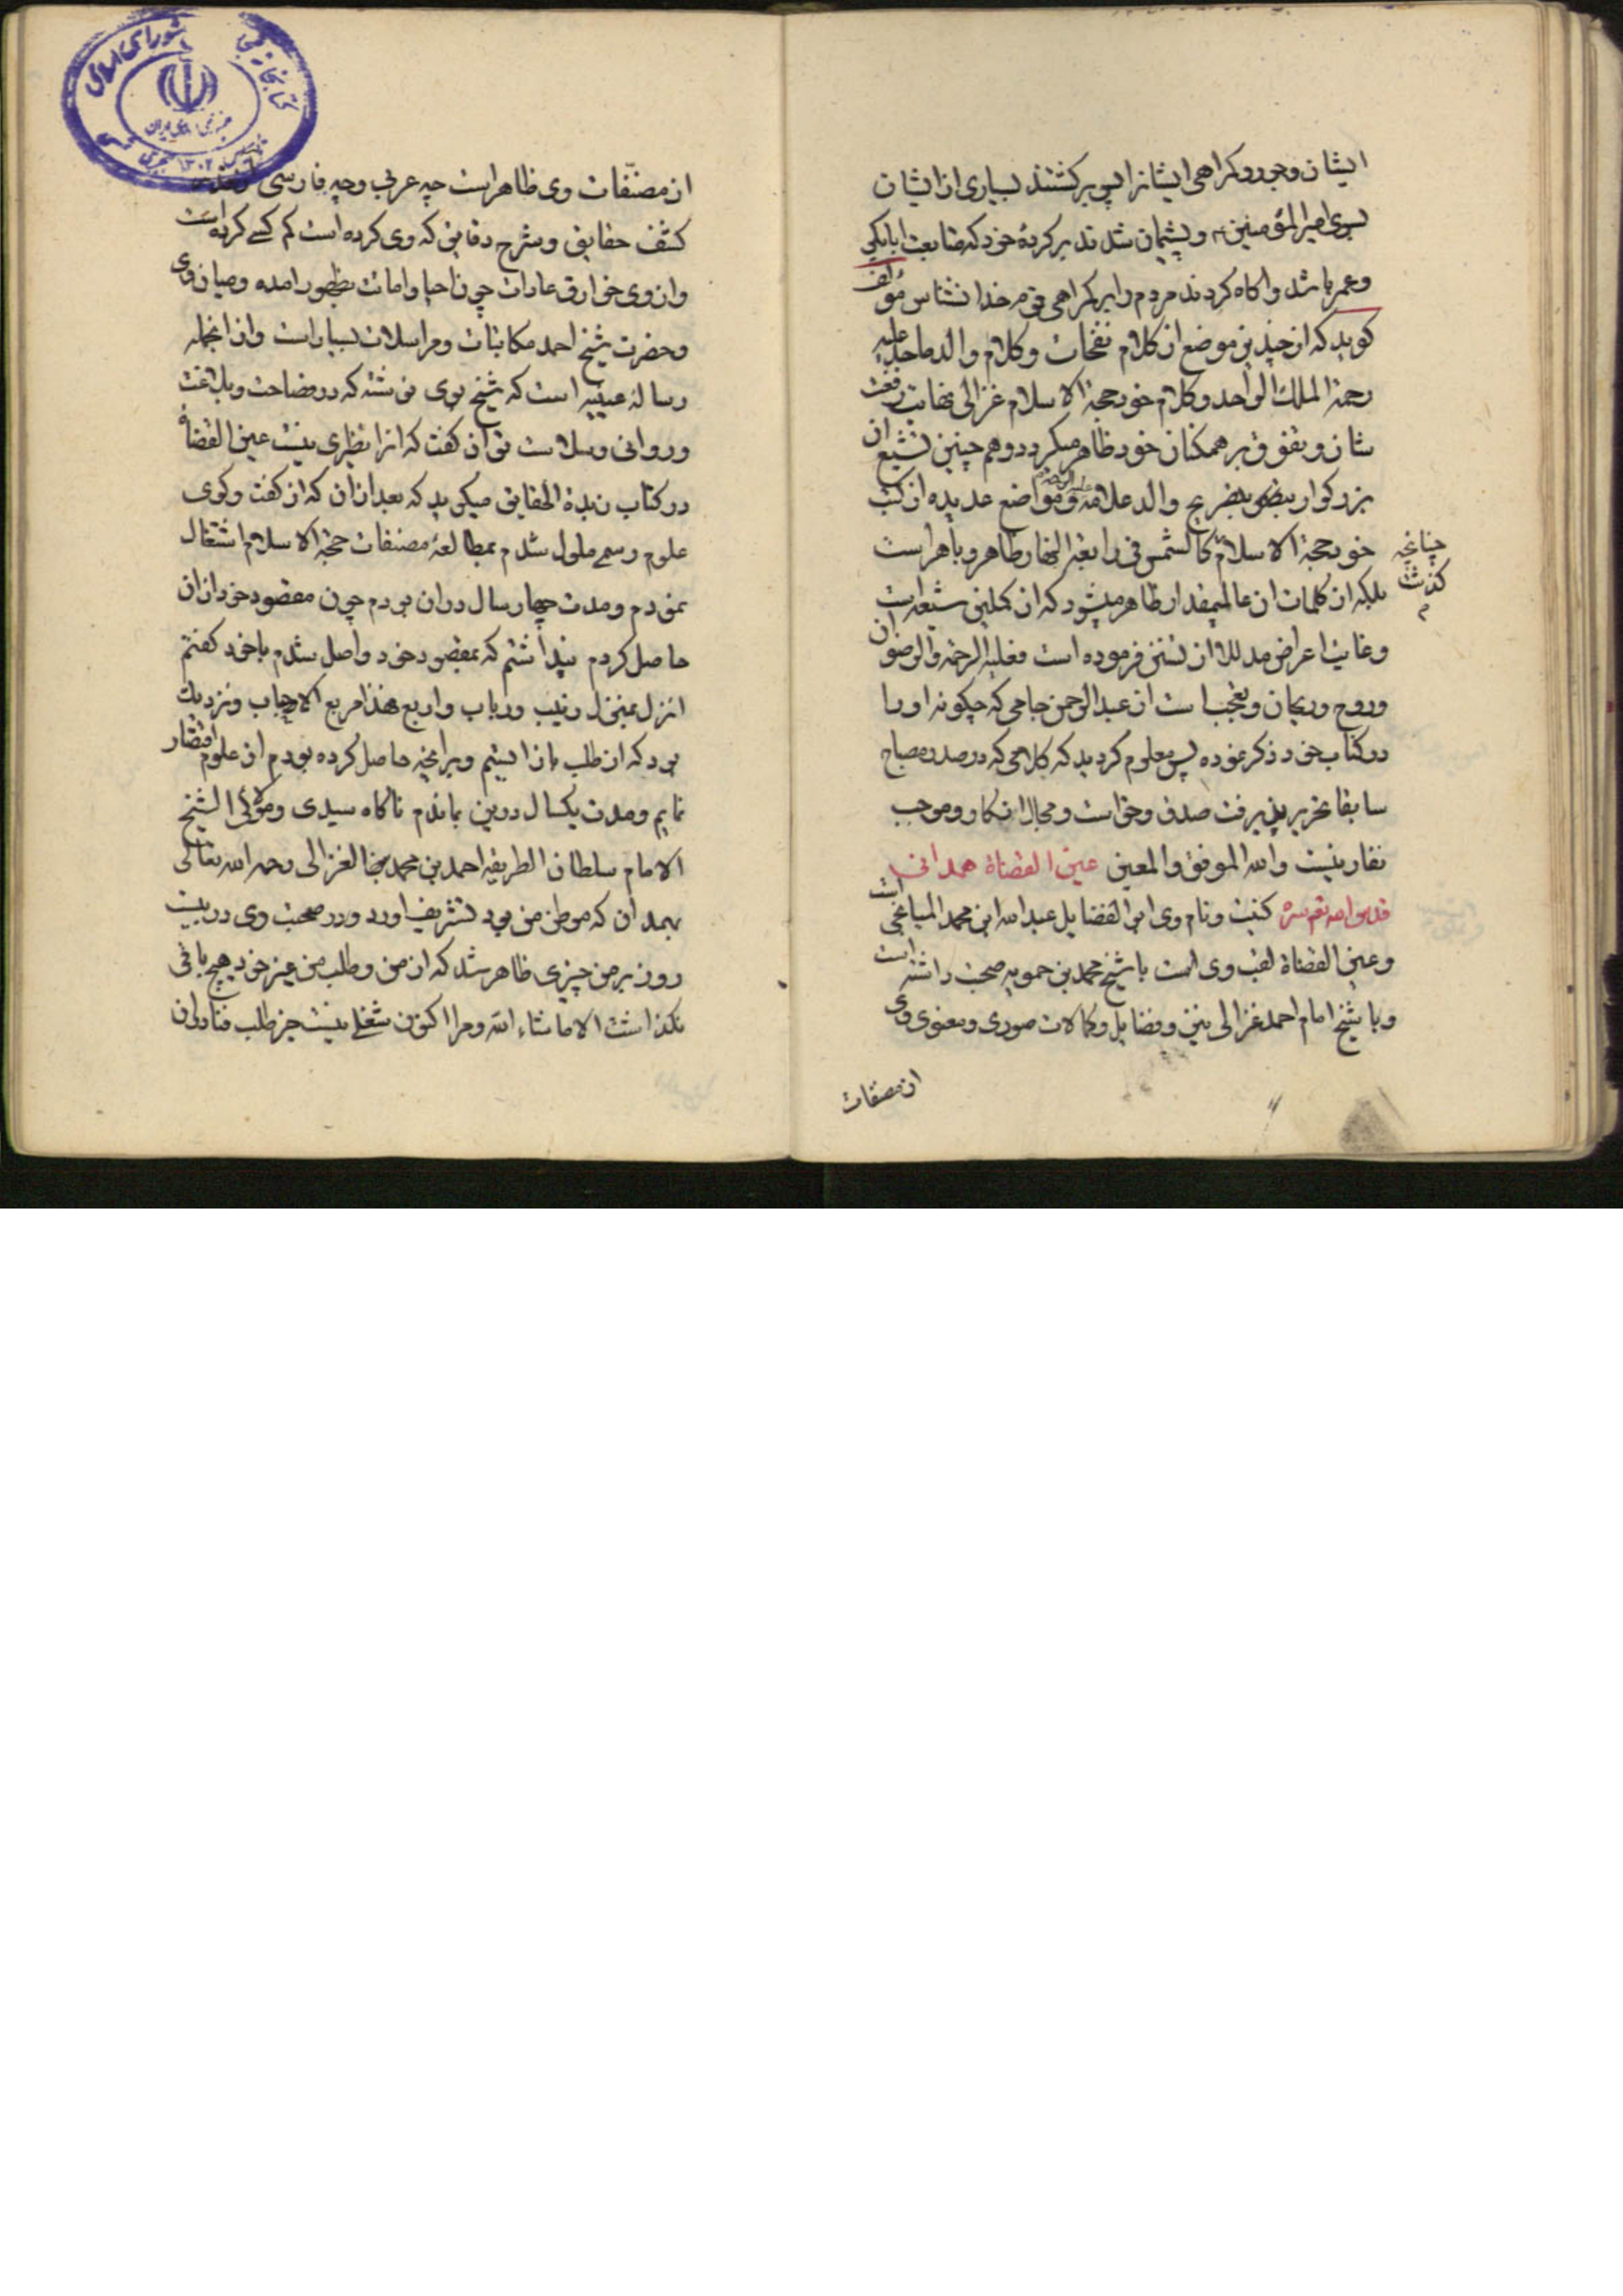 ایشان وجور و کمراهی ایشانرا پس برکشتند بسیاری از ایشان
بسوی امیرالمؤمنین و پشیمان شدند بر کردهٔ خود که متابعت ابابکر
و عمر باشد و اکاه کردند مردم را بر کمراهی قوم خدا نشناس مؤلف
کوید که از چندین موضع از کلام نفحات و کلام والد ماجد علیه
رحمة الملك الواحد و کلام خود حجة الاسلام غزالی نهایت رفعت
شان و تفوق بر همکنان خود ظاهر میکردد و هم چنین تشیع ان
بزرکوار بتصریح والد علامه و مواضع عدیده از کتب
خود حجة الاسلام کالشمس فی رابعة النهار ظاهر و باهر است
چنانچه
کذشت
بلکه از کلمات ان عالیمقدار ظاهر میشود که از کملین شیعه است
و غایت اعراض مدلل از تسنن فرموده است فعلیه الرحمة والرضوان
و روح و ریحان و تعجب است از عبدالرحمن جامی که چکونه او را
در کتاب خود ذکر نموده پس معلوم کردید که کلامی که در صدر مصباح
سابقا تحریر پذیرفت صدق و حق است و مجال انکار و موجب
نقار نیست والله الموفق والمعین عین القضاة همدانی
قدس الله تع سره کنیت و نام وی ابو الفضایل عبدالله ابن محمد المیانجی است
و عین القضاة لقب وی است با شیخ محمد بن حمویه صحبت داشته است
و با شیخ امام احمد غزالی نیز و فضایل و کمالات صوری و معنوی وی
از مصنفات
از مصنّفات وی ظاهر است چه عربی و چه فارسی
کشف حقایق و شرح دقایق که وی کرده است کم کسی کرده است
و از وی خوارق عادات چون احیا و اماتت بظهور امده و میان وی
و حضرت شیخ احمد مکاتبات و مراسلات بسیار است و از انجمله
رسالهٔ عینیه است که شیخ بوی نوشته که در فصاحت و بلاغت
و روانی و سلاست توان کفت که انرا نظیری نیست عین القضاة
در کتاب زبدة الحقایق میکوید که بعد از ان که از کفت و کوی
علوم رسمی ملول شدم بمطالعهٔ مصنفات حجة الاسلام اشتغال
نمودم و مدت چهار سال در ان بودم چون مقصود خود از ان
حاصل کردم پنداشتم که بمقصود خود واصل شدم باخود کفتم
انزل بمنزل زینب و رباب و اربع فهذا مربع الاحباب و نزدیك
بود که از طلب باز ایستم و بر انچه حاصل کرده بودم از علوم اقتصار
نمایم و مدت یکسال درین بماندم ناکاه سیدی و مولای الشیخ
الامام سلطان الطریقه احمد بن محمد بن الغزالی رحمه الله تعالی
بهمدان که موطن من بود تشریف اورد و در صحبت وی در بیست
روز بر من چیزی ظاهر شد که از من و طلب من غیر خود هیچ باقی
نکذاشت الا ماشاء الله و مرا اکنون شغلی نیست جز طلب فنا در ان